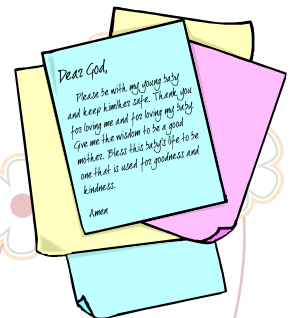 Dear God,
Please be with my young baby
and keep him/her safe. Thank you
for loving me and for loving my baby.
Give me the wisdom to be a good
mother. Bless this baby's life to be
one that is used for goodness and
kindness.
Amen